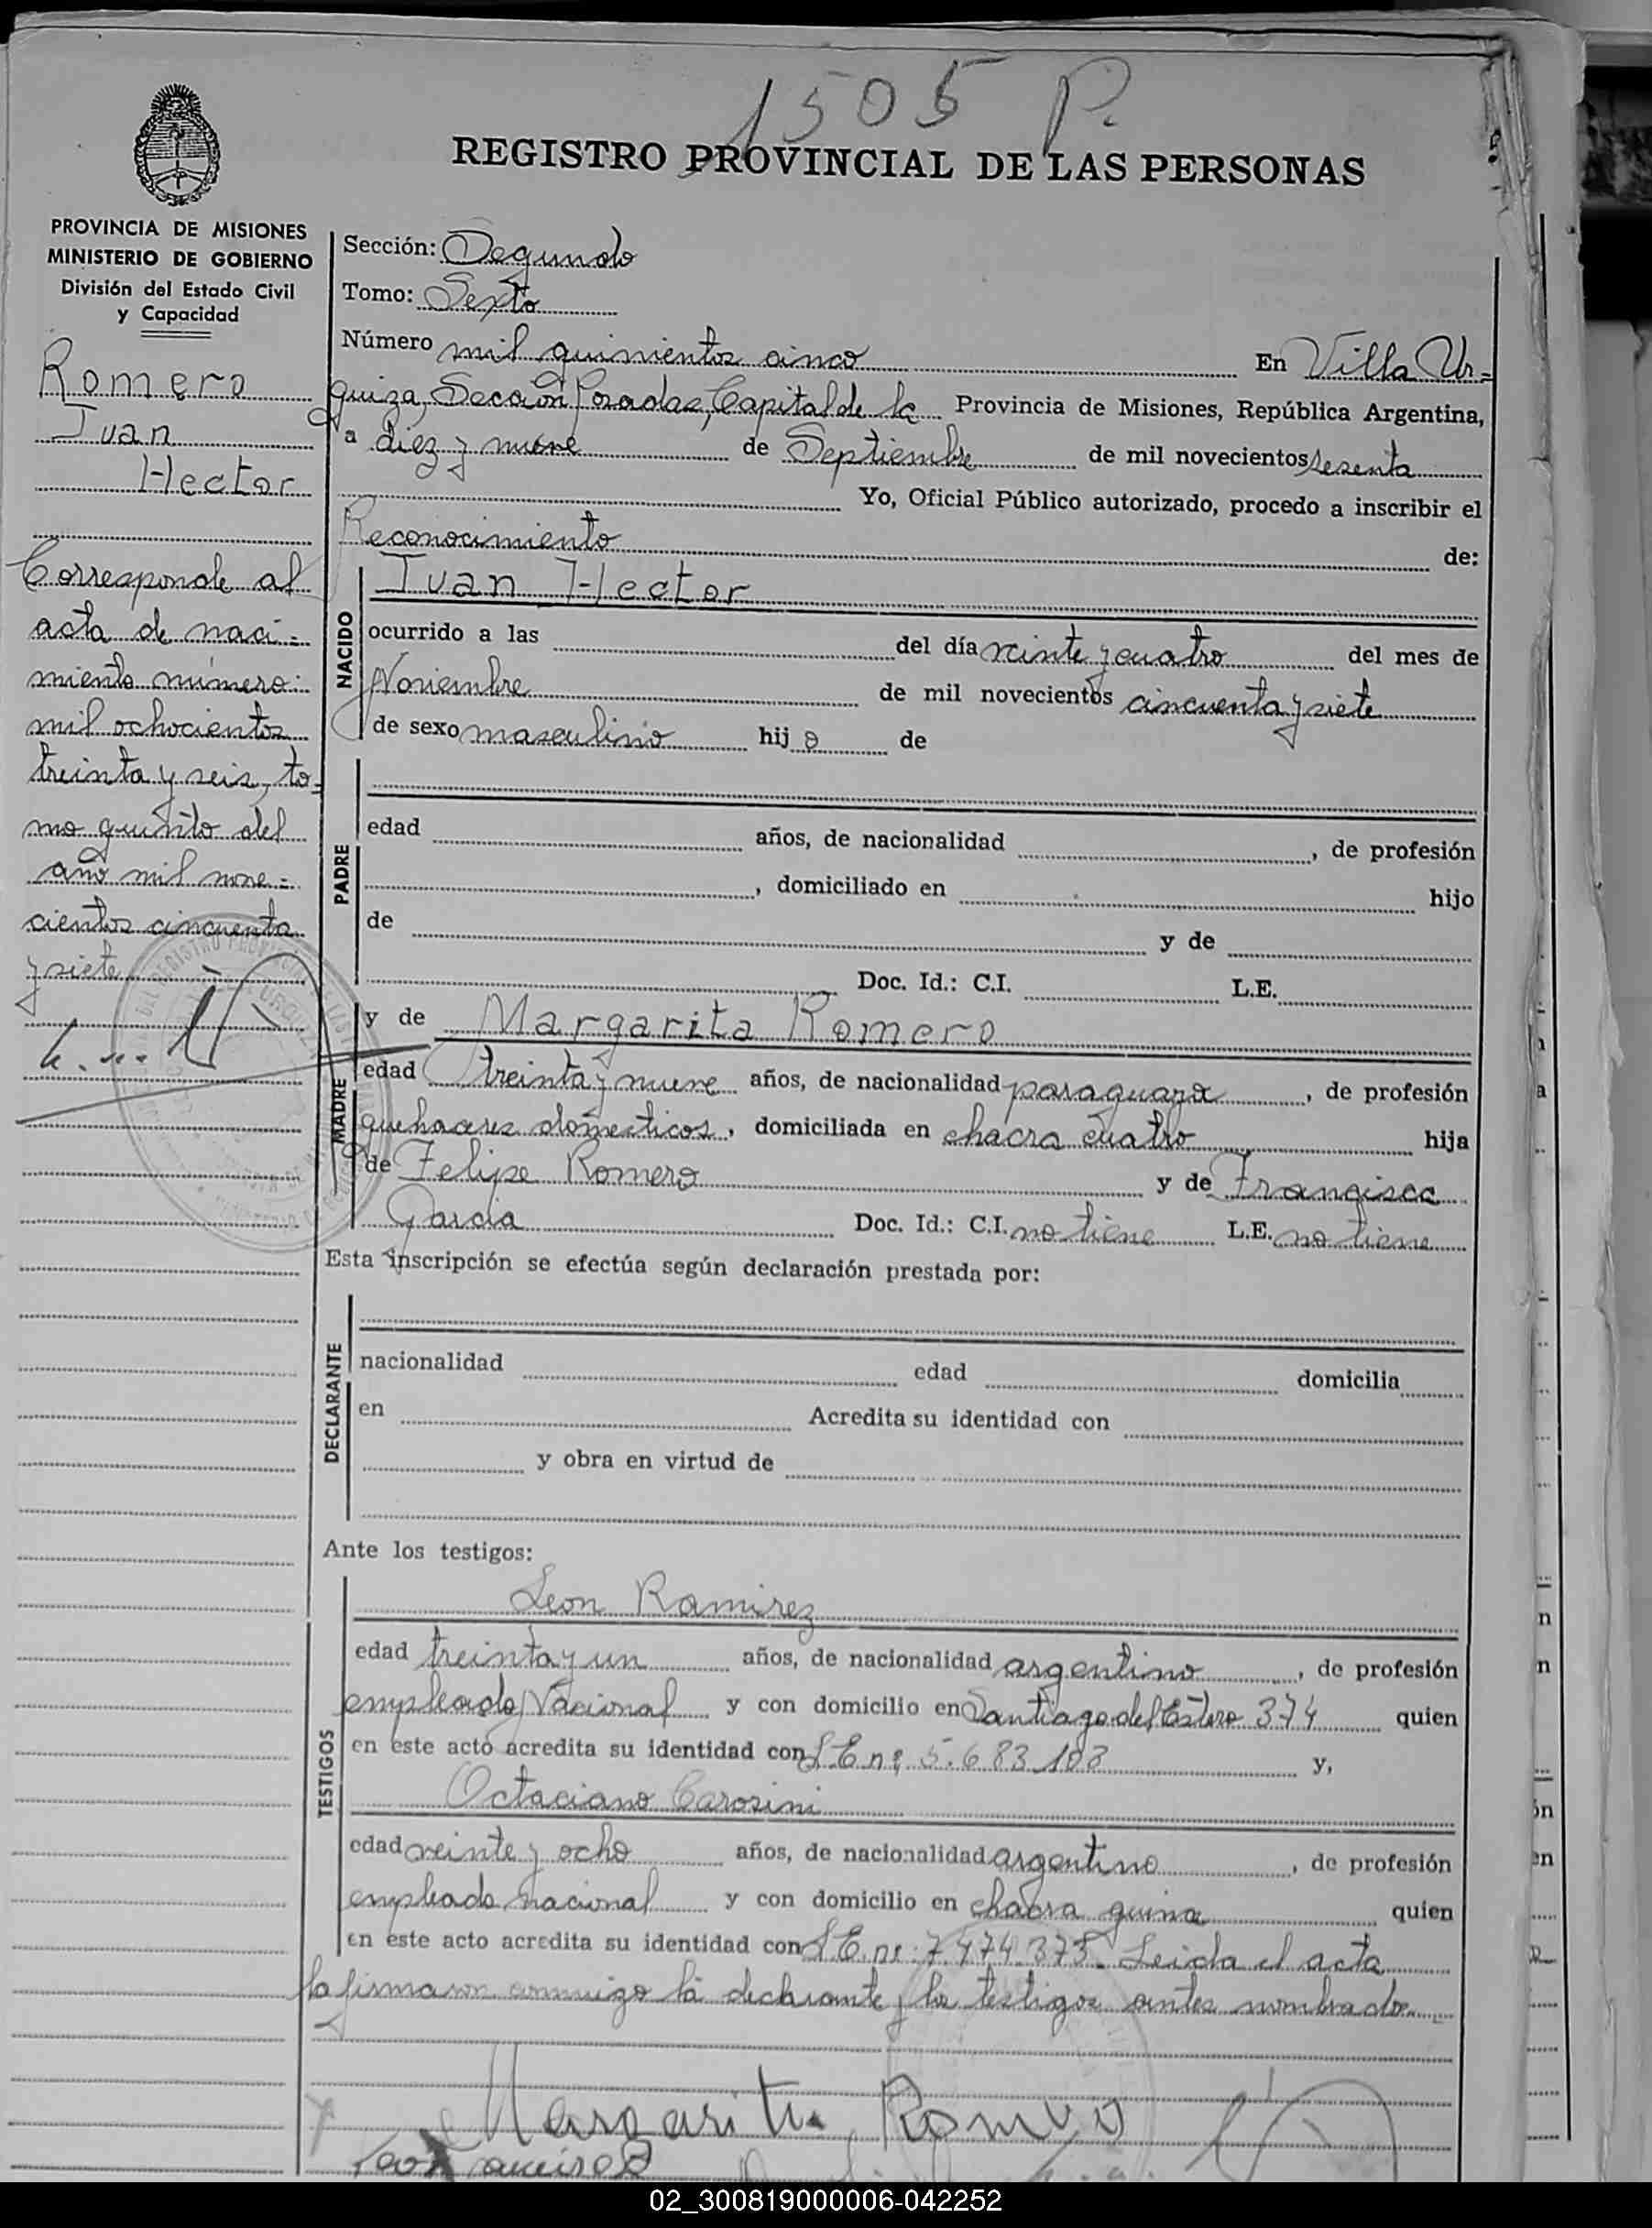 1505 P.
REGISTRO PROVINCIAL DE LAS PERSONAS
PROVINCIA DE MISIONES
MINISTERIO DE GOBIERNO
División del Estado Civil
y Capacidad
Romero
Juan
Hector
Corresponde al
acta de naci=
miento número:
mil ochocientos
treinta y seis, to=
mo quinto del
año mil nove=
cientos cincuenta
y siete
Sección: Segunda
Tomo: Sexto
Número mil quinientos cinco En Villa Ur=
quiza, Sección Posadas, Capital de la Provincia de Misiones, República Argentina,
a diez y nueve de Septiembre de mil novecientos sesenta
Yo, Oficial Público autorizado, procedo a inscribir el
Reconocimiento de:
NACIDO
Juan Hector
ocurrido a las del día veinte y cuatro del mes de
Noviembre de mil novecientos cincuenta y siete
de sexo masculino hijo de
PADRE
edad años, de nacionalidad , de profesión
, domiciliado en hijo
de y de
Doc. Id.: C.I. L.E.
MADRE
y de Margarita Romero
edad treinta y nueve años, de nacionalidad paraguaya, de profesión
quehaceres domesticos, domiciliada en chacra cuatro hija
de Felipe Romero y de Francisca
Garcia Doc. Id.: C.I. no tiene L.E. no tiene
Esta inscripción se efectúa según declaración prestada por:
DECLARANTE
nacionalidad edad domicilia
en Acredita su identidad con
y obra en virtud de
Ante los testigos:
TESTIGOS
Leon Ramirez
edad treinta y un años, de nacionalidad argentino, de profesión
empleado Nacional y con domicilio en Santiago del Estero 374 quien
en este acto acredita su identidad con L.E. nº 5.683.108 y,
Octaciano Carosini
edad veinte y ocho años, de nacionalidad argentino, de profesión
empleado nacional y con domicilio en chacra quince quien
en este acto acredita su identidad con L.E. nº: 7.474.373. Leida el acta
la firmaron conmigo la declarante y los testigos antes nombrados.
Margarita Romero
Leon Ramirez
02_300819000006-042252